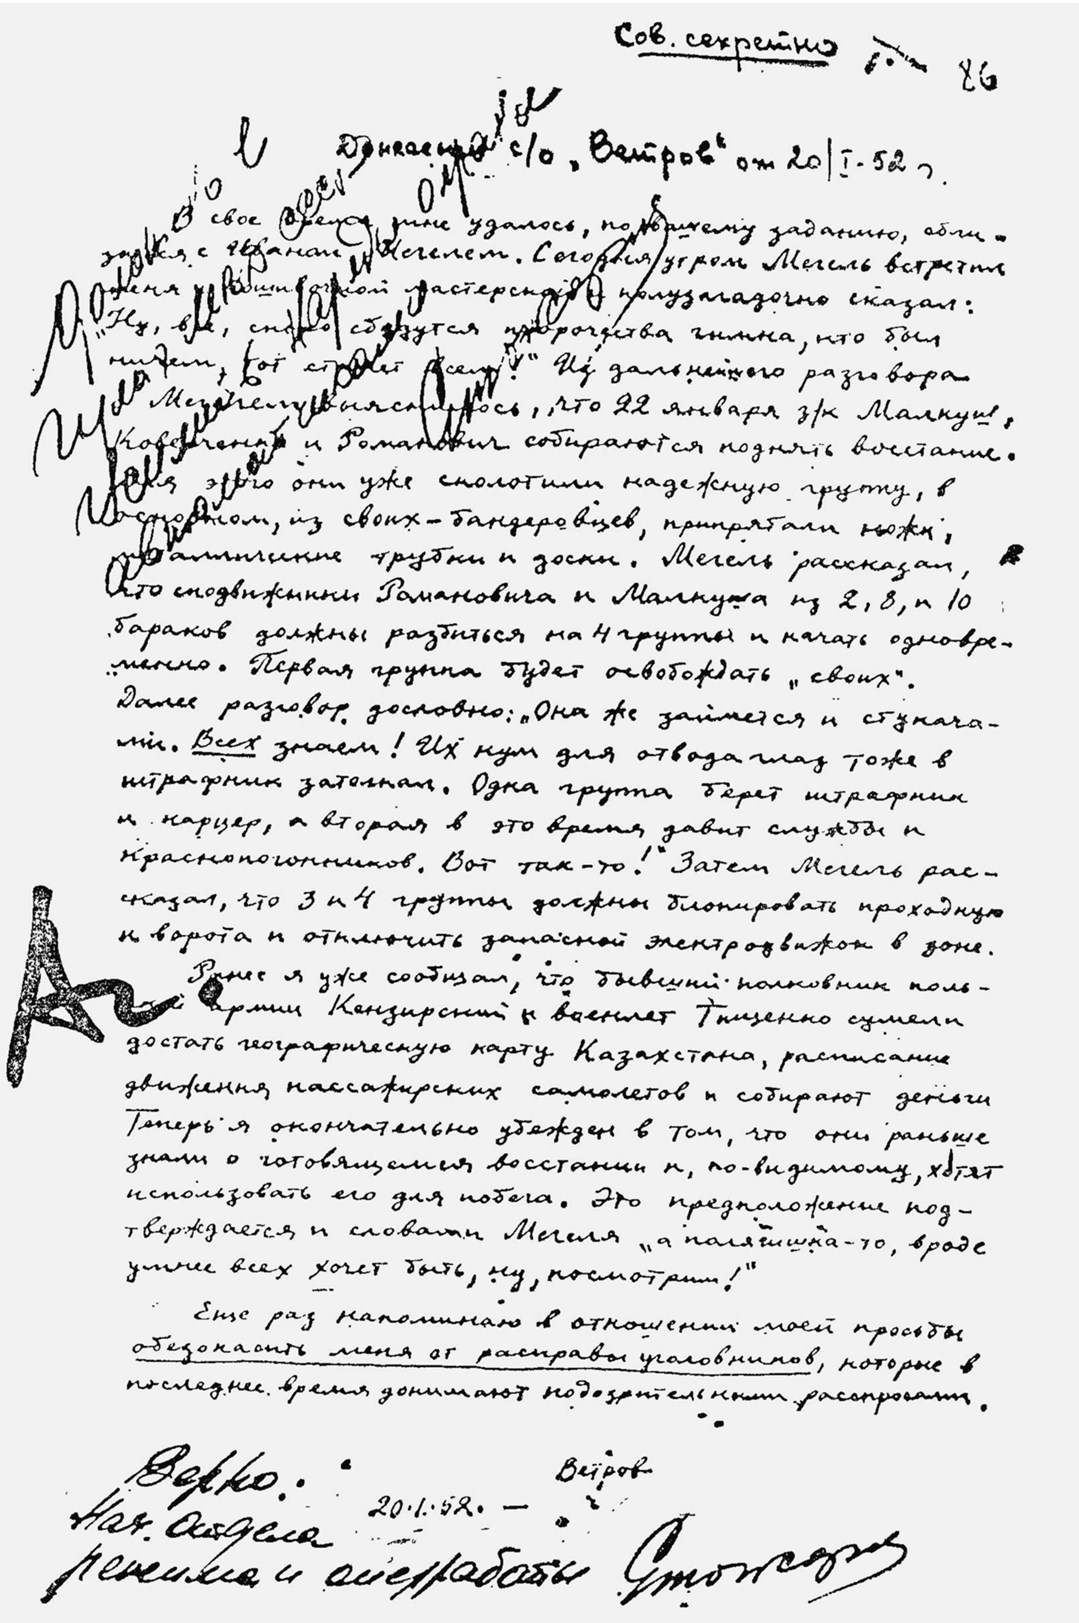 Сов. секретно
86
Донесение с/о „Ветров“ от 20/I-52 г.
В свое время мне удалось, по Вашему заданию, сбли-
зиться с Иваном Мегелем. Сегодня утром Мегель встретил
меня в пошивочной мастерской и полузагадочно сказал:
„Ну, все, скоро сбудутся пророчества гимна, кто был
ничем, тот станет всем!“ Из дальнейшего разговора
с Мегелем выяснилось, что 22 января з/к Малкуш,
Коверченко и Романович собираются поднять восстание.
Для этого они уже сколотили надежную группу, в
основном, из своих-бандеровцев, припрятали ножи,
металлические трубки и доски. Мегель рассказал,
что сподвижники Романовича и Малкуша из 2, 8, и 10
бараков должны разбиться на 4 группы и начать одновре-
менно. Первая группа будет освобождать „своих“.
Далее разговор дословно: „Она же займется и стукача-
ми. Всех знаем! Их кум для отвода глаз тоже в
штрафник затолкал. Одна группа берет штрафник
и карцер, а вторая в это время давит службы и
краснопогонников. Вот так-то!“ Затем Мегель рас-
сказал, что 3 и 4 группы должны блокировать проходную
и ворота и отключить запасной электродвижок в зоне.
Ранее я уже сообщал, что бывший полковник поль-
ской армии Кензирский и военлет Тищенко сумели
достать географическую карту Казахстана, расписание
движения пассажирских самолетов и собирают деньги
Теперь я окончательно убежден в том, что они раньше
знали о готовящемся восстании и, по-видимому, хотят
использовать его для побега. Это предположение под-
тверждается и словами Мегеля „а полячишка-то, вроде
умнее всех хочет быть, ну, посмотрим!“
Еще раз напоминаю в отношении моей просьбы
обезопасить меня от расправы уголовников, которые в
последнее время донимают подозрительными расспросами.
Ветров
20.I.52.
Верно:
Нач. отдела
режима и оперработы Стожаров